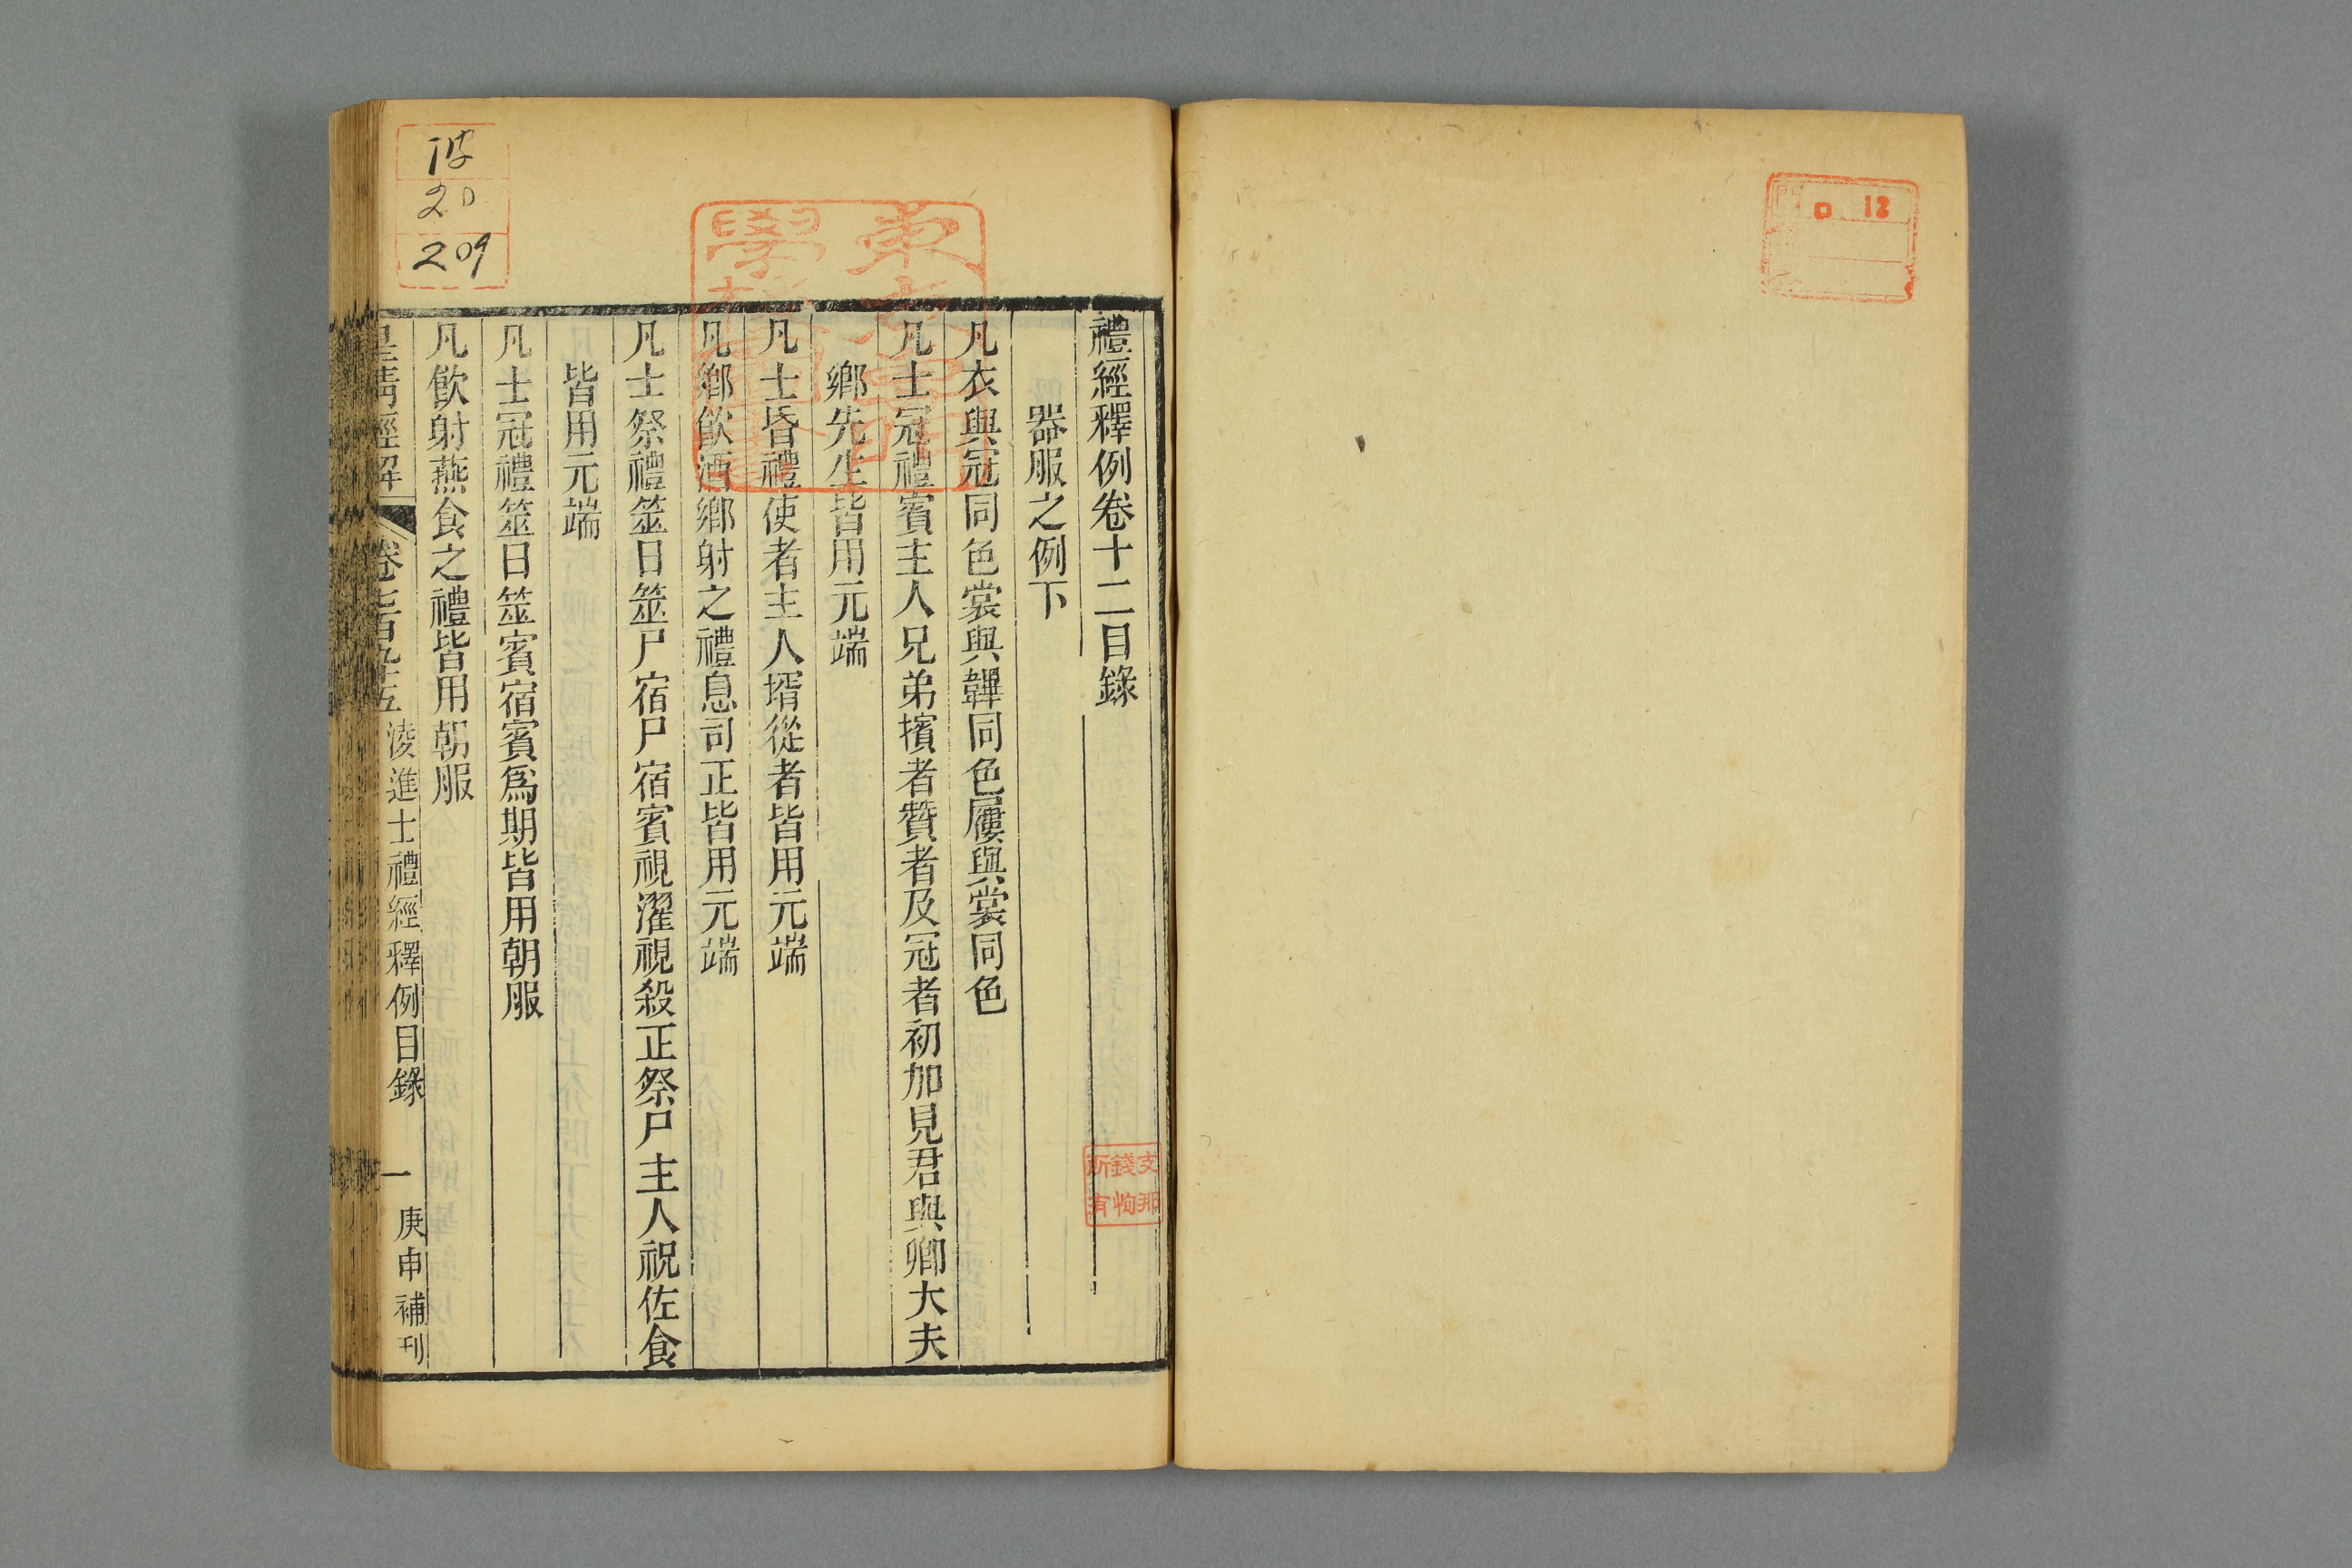 禮經釋例卷十二目錄
器服之例下
凡衣與冠同色裳與韠同色屨與裳同色
凡士冠禮賓主人兄弟擯者贊者及冠者初加見君與卿大夫
鄉先生皆用元端
凡士昏禮使者主人壻從者皆用元端
凡鄉飲酒鄉射之禮息司正皆用元端
凡士祭禮筮日筮尸宿尸宿賓視濯視殺正祭尸主人祝佐食
皆用元端
凡士冠禮筮日筮賓宿賓爲期皆用朝服
凡飲射燕食之禮皆用朝服
皇清經解
卷七百九十五
淩進士禮經釋例目錄
一
庚申補刊
20
209
12
支那
錢恂
所有